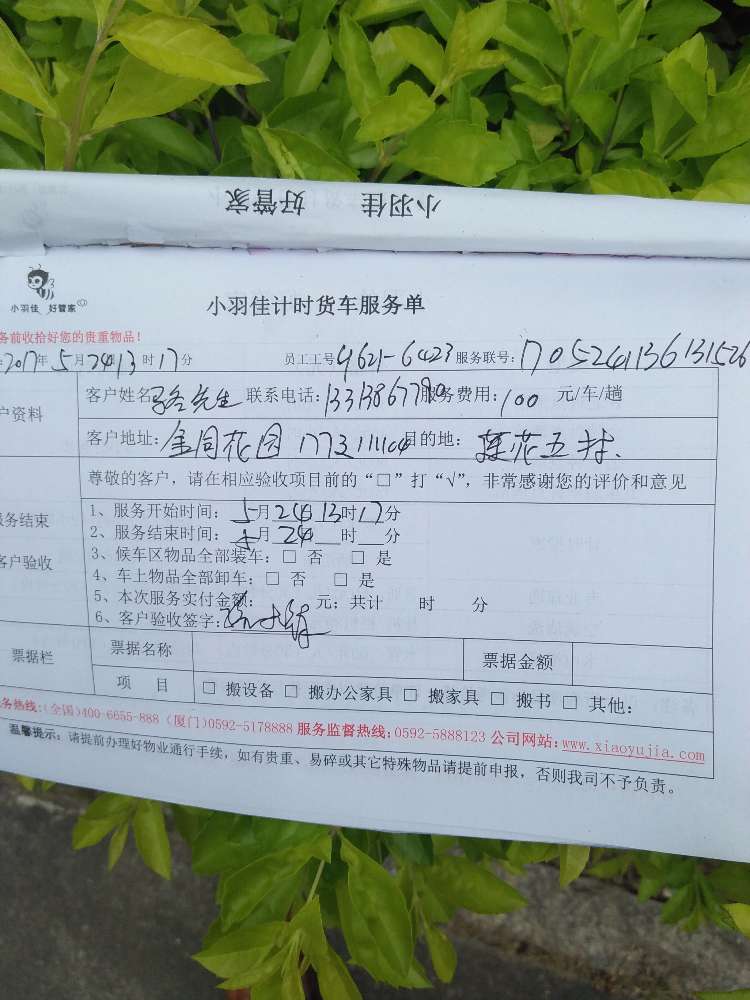 小羽佳 好管家
小羽佳 好管家
小羽佳计时货车服务单
务前收拾好您的贵重物品！
2017年5月24 13时17分 员工工号 9621-6423 服务联号：170524136131526
户资料 客户姓名 先生 联系电话： 服务费用：100 元/车/趟
客户地址：金同花园 目的地：莲花五村
尊敬的客户，请在相应验收项目前的“□”打“√”，非常感谢您的评价和意见
服务结束
客户验收
1、服务开始时间：5月24 13时17分
2、服务结束时间：5月24 时 分
3、候车区物品全部装车：□ 否 □ 是
4、车上物品全部卸车：□ 否 □ 是
5、本次服务实付金额： 元；共计 时 分
6、客户验收签字：
票据栏 票据名称 票据金额
项 目 □ 搬设备 □ 搬办公家具 □ 搬家具 □ 搬书 □ 其他：
务热线：(全国)400-6655-888 (厦门)0592-5178888 服务监督热线：0592-5888123 公司网站：www.xiaoyujia.com
温馨提示：请提前办理好物业通行手续，如有贵重、易碎或其它特殊物品请提前申报，否则我司不予负责。